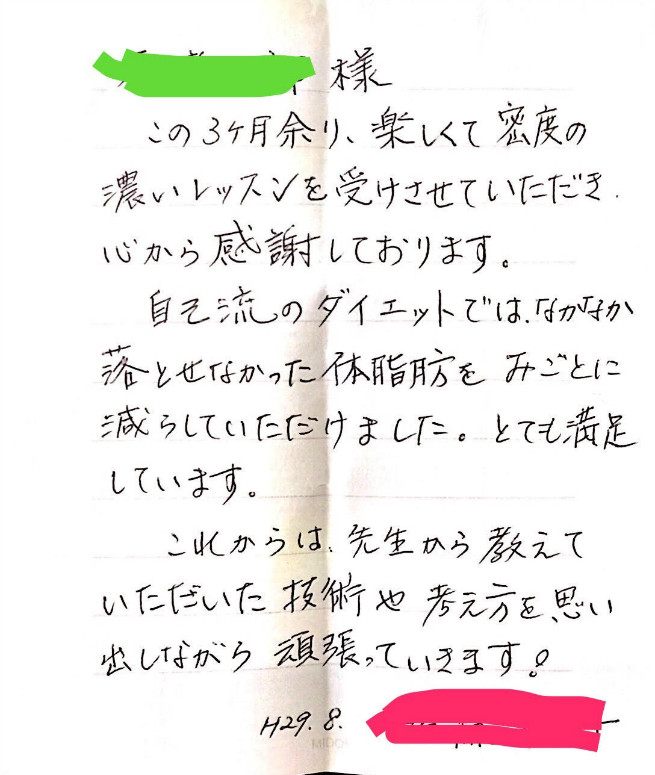 様
この3ケ月余り、楽しくて密度の
濃いレッスンを受けさせていただき、
心から感謝しております。
自己流のダイエットでは、なかなか
落とせなかった体脂肪をみごとに
減らしていただけました。とても満足
しています。
これからは、先生から教えて
いただいた技術や考え方を、思い
出しながら頑張っていきます。
H29.8.